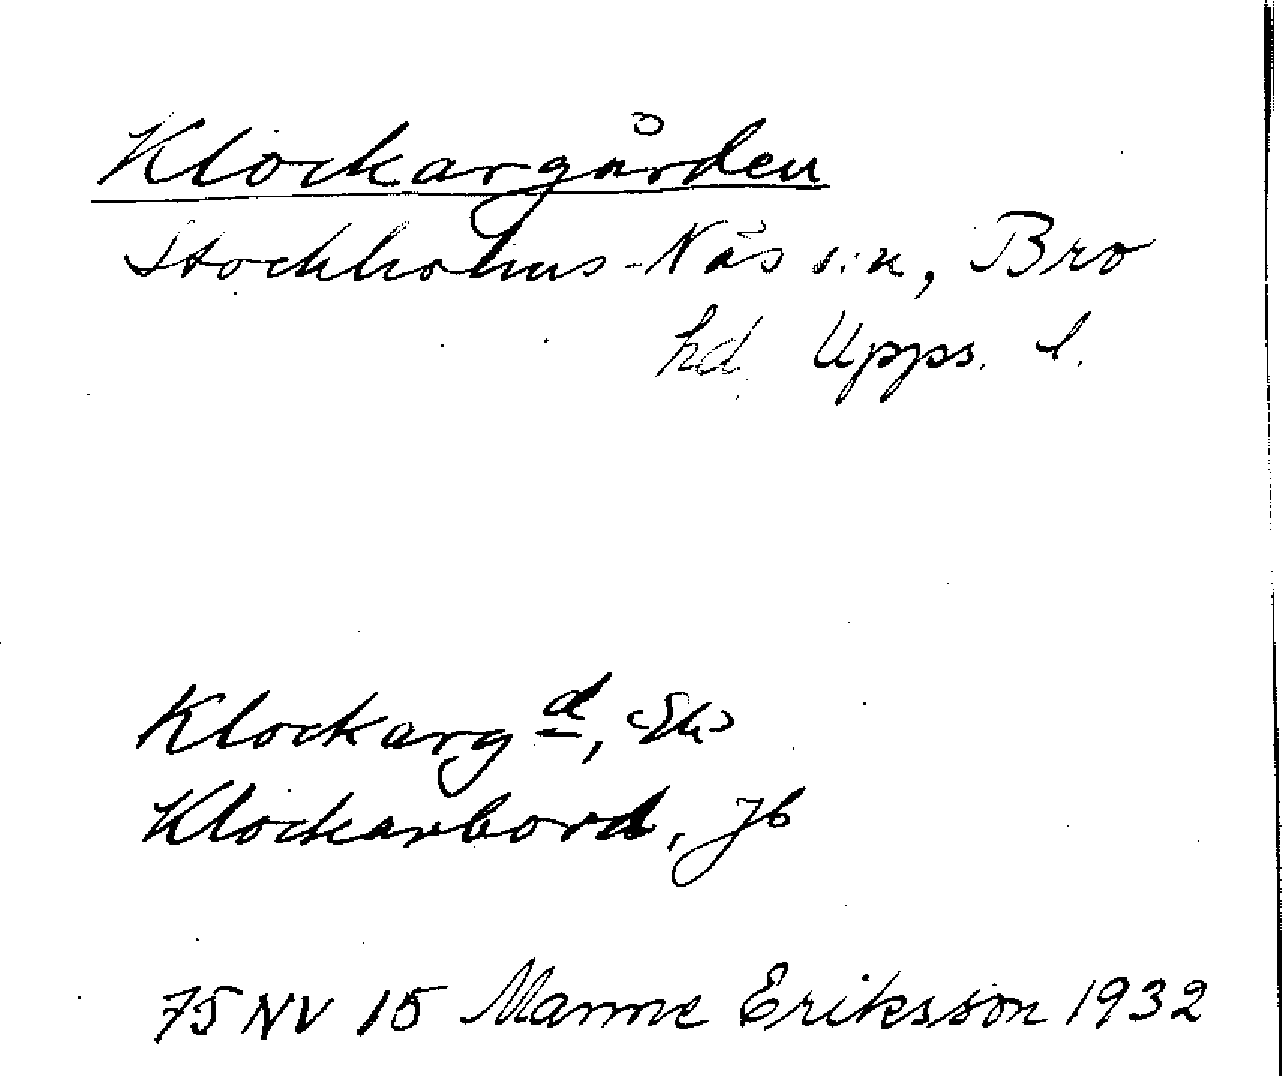 Klockargården
Stockholms-Näs s:n, Bro
hd. Upps. l.
Klockargd, Sk
Klockarbord, Jb
75 NV 15 Manne Eriksson 1932